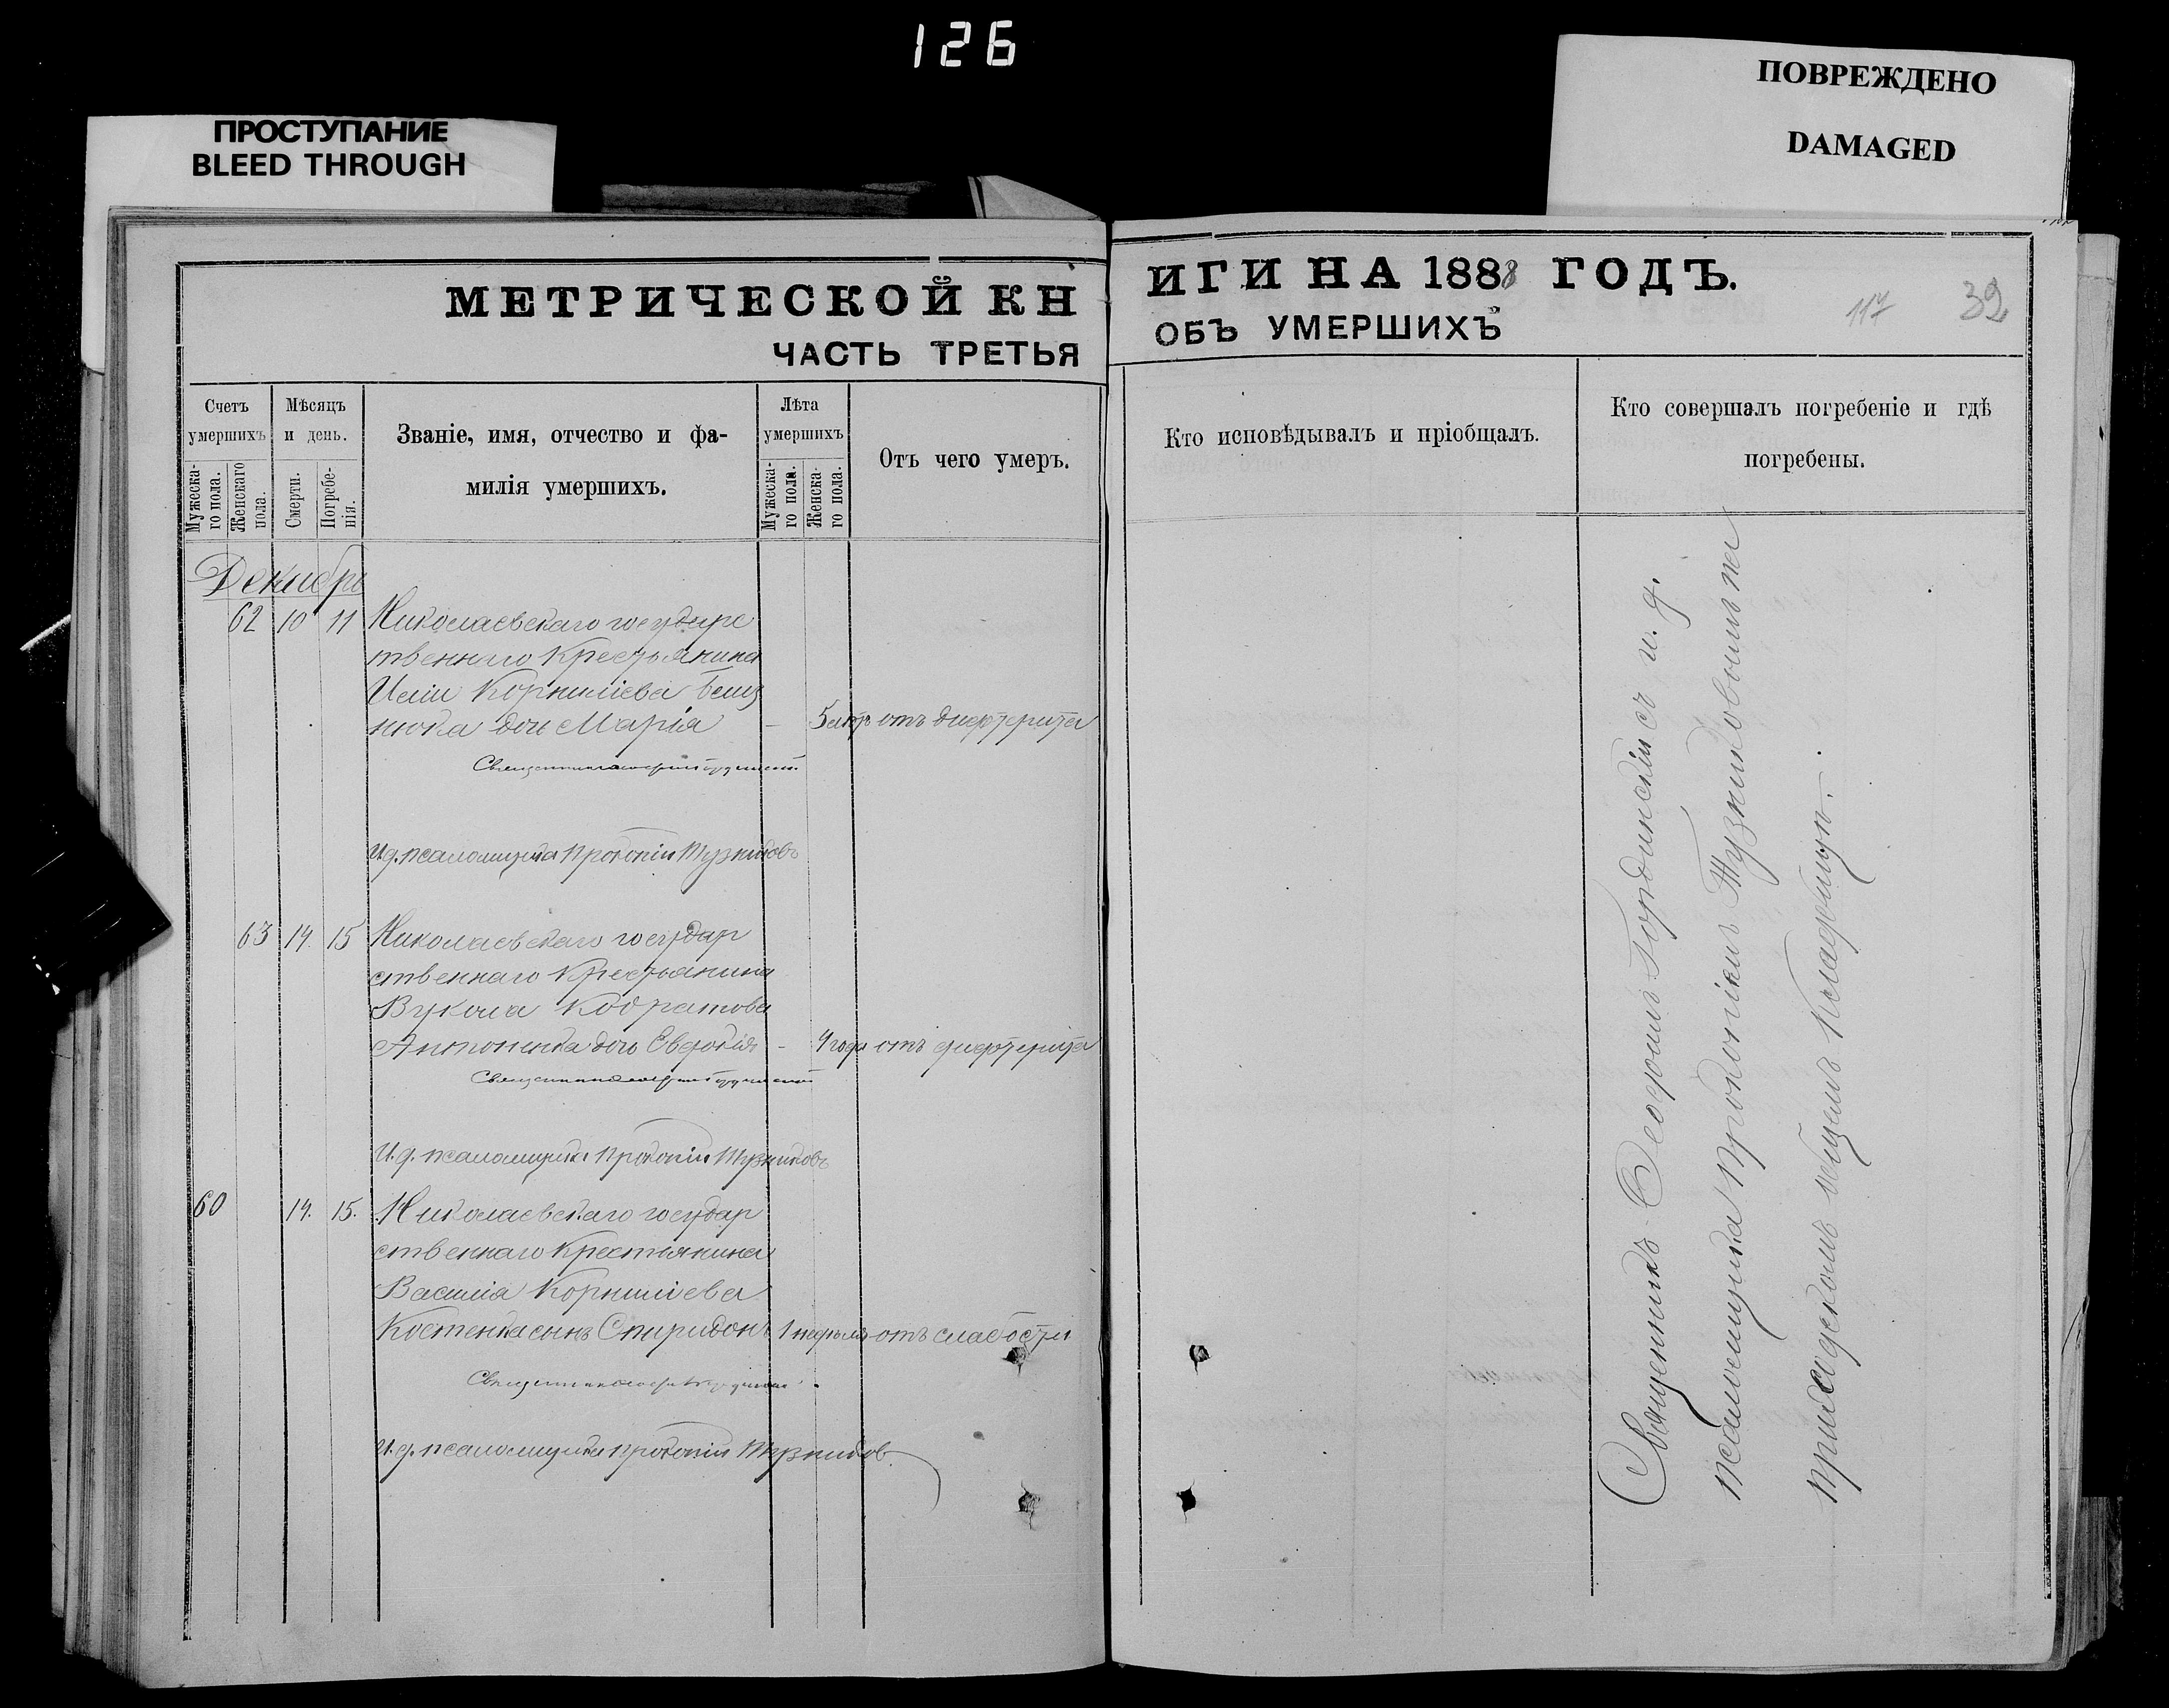 126
ПРОСТУПАНИЕ
BLEED THROUGH
ПОВРЕЖДЕНО
DAMAGED
МЕТРИЧЕСКОЙ КН
ЧАСТЬ ТРЕТЬЯ
Счетъ
умершихъ
Мужеска-
го пола.
Женскаго
пола.
Мѣсяцъ
и день.
Смерти.
Погребе-
нія.
Званіе, имя, отчество и фа-
милія умершихъ.
Лѣта
умершихъ
Мужеска-
го пола.
Женска-
го пола.
Отъ чего умеръ.
Декабрь
62 10 11 Николаевскаго государс
твеннаго крестьянина
Корнилиева
дочь Марія - 5 лѣтъ отъ дифтерита
И.д. псаломщика Прокопій Тузниковъ
63 14. 15 Николаевскаго государ
ственнаго крестьянина
Вукола Кодратова
Антоненка дочь Евдокія - 4 года отъ дифтерита
И.д. псаломщика Прокопій Тузниковъ
60 14. 15. Николаевскаго государ
ственнаго крестьянина
Василія Корнилиева
Костенка сынъ Спиридонъ 1 недѣля отъ слабости
И.д. псаломщика Прокопій Тузниковъ
ИГИ НА 1888 ГОДЪ.
ОБЪ УМЕРШИХЪ
117 32
Кто исповѣдывалъ и пріобщалъ.
Кто совершалъ погребеніе и гдѣ
погребены.
Священникъ Гординскій съ и.д.
псаломщика Прокопіемъ Тузниковымъ на
приходскомъ общемъ кладбищѣ.